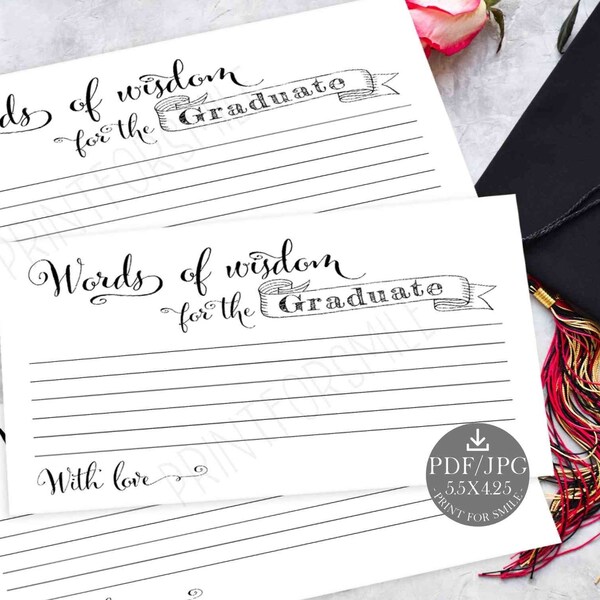 ds of wisdom
for the Graduate
Words of wisdom
for the Graduate
With love
PRINTFORSMILE
PDF/JPG
5.5X4.25
PRINT FOR SMILE